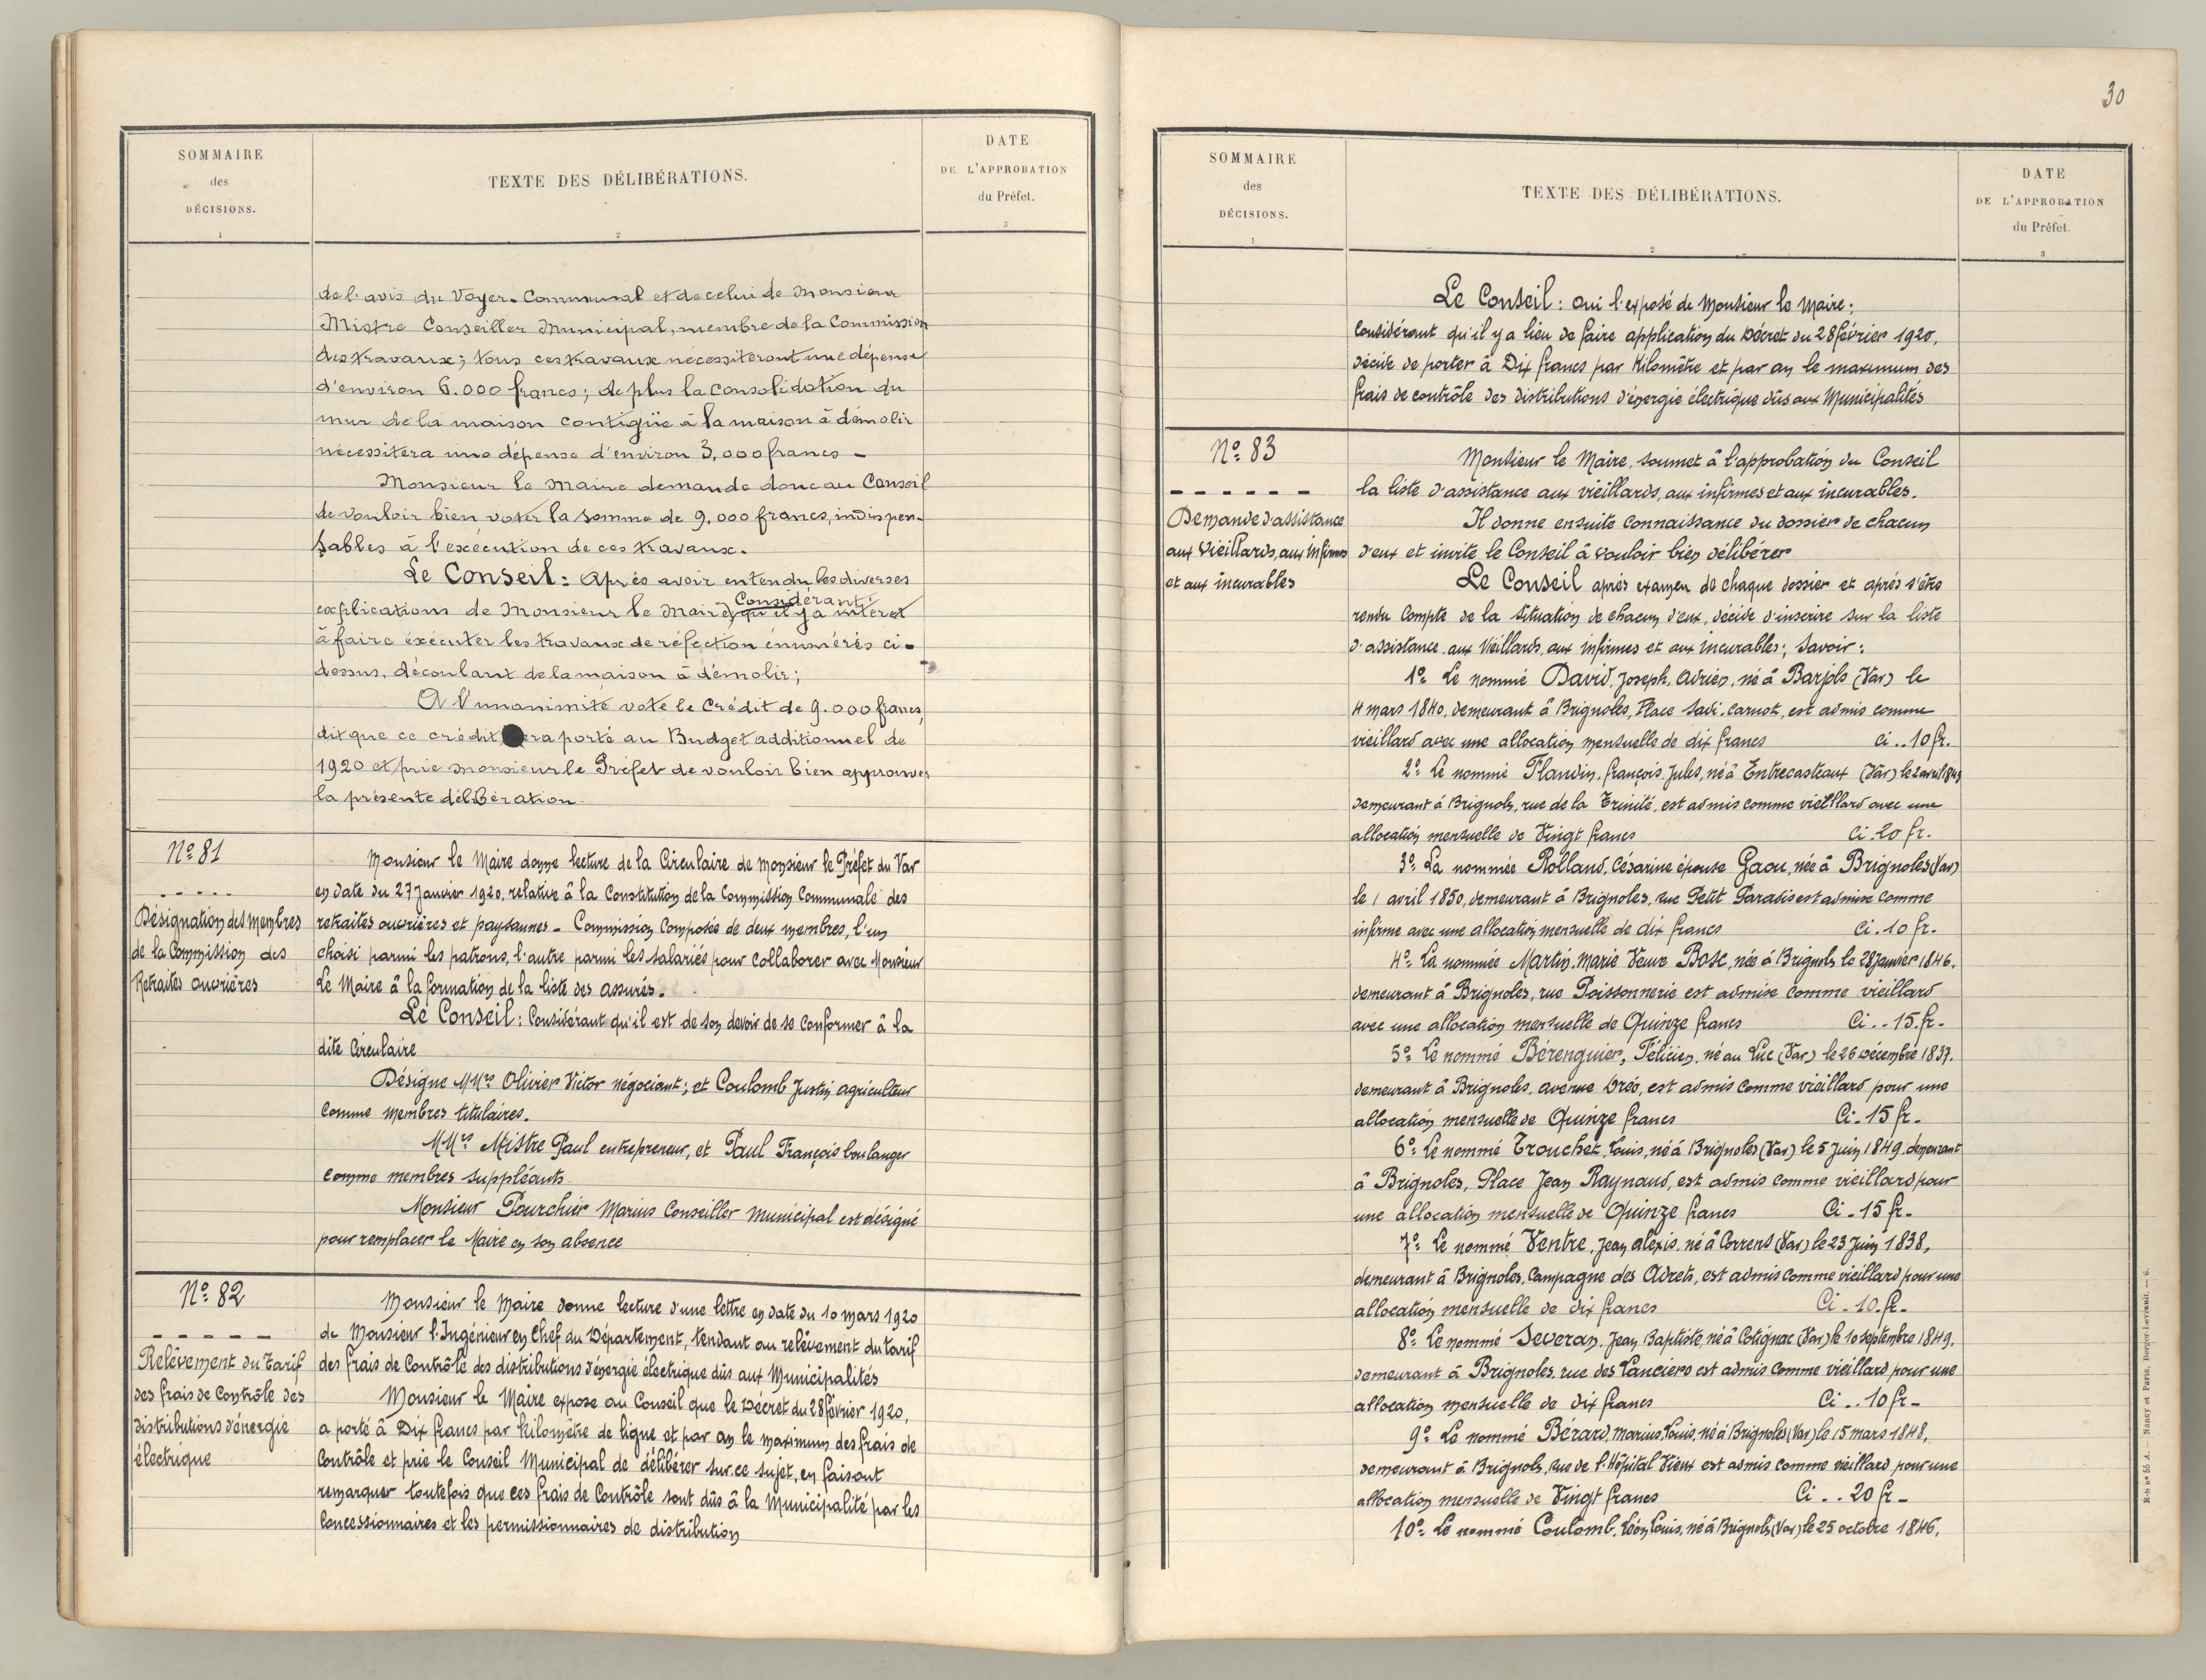 SOMMAIRE
des
DÉCISIONS.
1
TEXTE DES DÉLIBÉRATIONS.
2
DATE
DE L'APPROBATION
du Préfet.
3
de l'avis du Voyer-Communal et de celui de Monsieur
Mistre Conseiller Municipal, membre de la Commission
des travaux; tous ces travaux nécessiteront une dépense
d'environ 6.000 francs; de plus la consolidation du
mur de la maison contigüe à la maison à démolir
nécessitera une dépense d'environ 3,000 francs -
Monsieur le Maire demande donc au Conseil
de vouloir bien voter la somme de 9,000 francs, indispen-
sables à l'exécution de ces travaux.
Le Conseil: Après avoir entendu les diverses
explications de Monsieur le Maire, Considérant qu'il y a intérêt
à faire éxécuter les travaux de réfection énumérés ci-
dessus, découlant de la maison à démolir;
A l'unanimité vote le Crédit de 9.000 francs,
dit que ce crédit sera porté au Budget additionnel de
1920 et prie Monsieur le Préfet de vouloir bien approuver
la présente délibération.
No. 81
- - - - -
Désignation des Membres
de la Commission des
Retraites ouvrières
Monsieur le Maire donne lecture de la Circulaire de Monsieur le Préfet du Var
en date du 27 Janvier 1920, relative à la Constitution de la Commission Communale des
retraites ouvrières et paysannes - Commission Composée de deux membres, l'un
choisi parmi les patrons, l'autre parmi les salariés pour collaborer avec Monsieur
Le Maire à la formation de la liste des assurés.
Le Conseil: Considérant qu'il est de son devoir de se conformer à la
dite Circulaire
Désigne MMrs Olivier Victor négociant; et Coulomb Justin agriculteur
comme membres titulaires.
MMrs Mistre Paul entrepreneur, et Paul François boulanger
comme membres suppléants
Monsieur Pourchier Marius Conseiller Municipal est désigné
pour remplacer le Maire en son absence
No. 82
- - - - -
Relèvement du Tarif
des frais de Contrôle des
distributions d'énergie
électrique
Monsieur le Maire donne lecture d'une lettre en date du 10 mars 1920
de Monsieur l'Ingénieur en Chef du Département, tendant au relèvement du tarif
des frais de Contrôle des distributions d'énergie électrique dûs aux Municipalités
Monsieur le Maire expose au Conseil que le Décret du 28 février 1920,
a porté à Dix francs par kilomètre de ligne et par an le maximum des frais de
Contrôle et prie le Conseil Municipal de délibérer sur ce sujet, en faisant
remarquer toutefois que ces frais de Contrôle sont dûs à la Municipalité par les
Concessionnaires et les permissionnaires de distribution
30
SOMMAIRE
des
DÉCISIONS.
1
TEXTE DES DÉLIBÉRATIONS.
2
DATE
DE L'APPROBATION
du Préfet.
3
Le Conseil: oui l'exposé de Monsieur le Maire;
Considérant qu'il y a lieu de faire application du Décret du 28 février 1920,
décide de porter à Dix francs par Kilomètre et par an le maximum des
frais de contrôle des distributions d'énergie électrique dûs aux Municipalités
No. 83
- - - - - -
Demande d'assistance
aux Vieillards, aux infirmes
et aux incurables
Monsieur le Maire, soumet à l'approbation du Conseil
la liste d'assistance aux vieillards, aux infirmes et aux incurables.
Il donne ensuite connaissance du dossier de chacun
d'eux et invite le Conseil à vouloir bien délibérer
Le Conseil après examen de chaque dossier et après s'être
rendu Compte de la situation de chacun d'eux, décide d'inscrire sur la liste
d'assistance aux Vieillards, aux infirmes et aux incurables; Savoir:
1o. Le nommé David, Joseph, Adrien, né à Barjols (Var) le
4 mars 1840, demeurant à Brignoles, Place Sadi-Carnot, est admis comme
vieillard avec une allocation mensuelle de dix francs ci .. 10 fr.
2o. Le nommé Flandin, François, Jules, né à Entrecasteaux (Var) le 2 avril 1849
demeurant à Brignoles, rue de la Trinité, est admis comme vieillard avec une
allocation mensuelle de Vingt francs Ci. 20 fr.
3o. La nommée Rolland, Césarine épouse Gaou, née à Brignoles (Var)
le 1 avril 1850, demeurant à Brignoles, rue Petit Paradis est admise comme
infirme avec une allocation mensuelle de dix francs Ci. 10 fr.
4o. La nommée Martin, Marie Veuve Bosc, née à Brignoles le 28 janvier 1846,
demeurant à Brignoles, rue Poissonnerie est admise comme vieillard
avec une allocation mensuelle de Quinze francs Ci .. 15. fr.
5o. Le nommé Bérenguier, Félicien, né au Luc (Var) le 26 Décembre 1837,
demeurant à Brignoles, avenue Dréo, est admis comme vieillard pour une
allocation mensuelle de Quinze francs Ci. 15 fr.
6o. Le nommé Trouchet, Louis, né à Brignoles (Var) le 5 Juin 1849, demeurant
à Brignoles, Place Jean Raynaud, est admis comme vieillard pour
une allocation mensuelle de Quinze francs Ci. 15 fr.
7o. Le nommé Ventre, Jean Alexis, né à Correns (Var) le 23 Juin 1838,
demeurant à Brignoles, Campagne des Adrets, est admis comme vieillard pour une
allocation mensuelle de dix francs Ci. 10. fr.
8o. Le nommé Severan, Jean Baptiste, né à Cotignac (Var) le 10 septembre 1849,
demeurant à Brignoles, rue des Lanciers est admis comme vieillard pour une
allocation mensuelle de dix francs Ci .. 10 fr.
9o. Le nommé Bérard, Marius, Louis, né à Brignoles (Var) le 15 mars 1848,
demeurant à Brignoles, rue de l'Hôpital Vieux est admis comme vieillard pour une
allocation mensuelle de Vingt francs Ci .. 20 fr.
10o. Le nommé Coulomb, Léon Louis, né à Brignoles (Var) le 25 octobre 1846,
R-b no 55 A. — Nancy et Paris, Berger-Levrault. — 6.